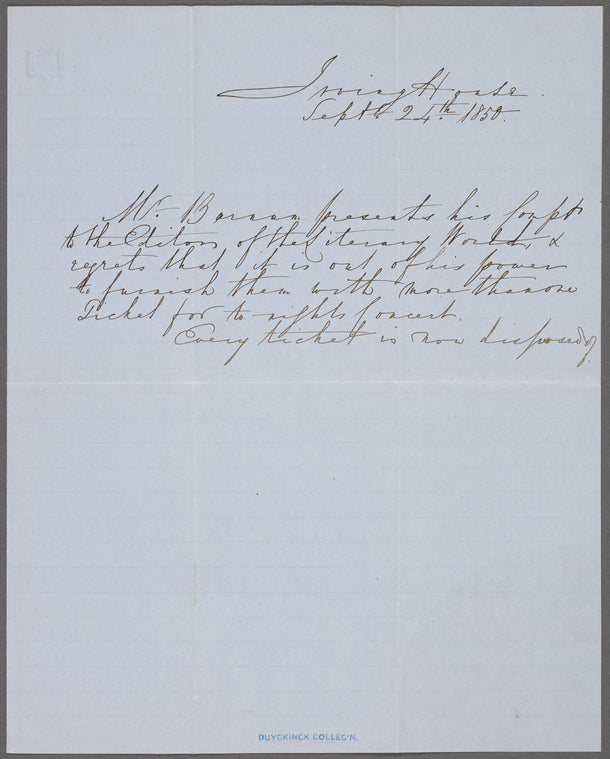 Irving House.
Septr 24th 1850.
Mr. Barnum presents his Compts
to the Editors of the Literary World, &
regrets that it is out of his power
to furnish them with more than one
Ticket for to-nights Concert.
Every ticket is now disposed of.
DUYCKINCK COLLEC'N.